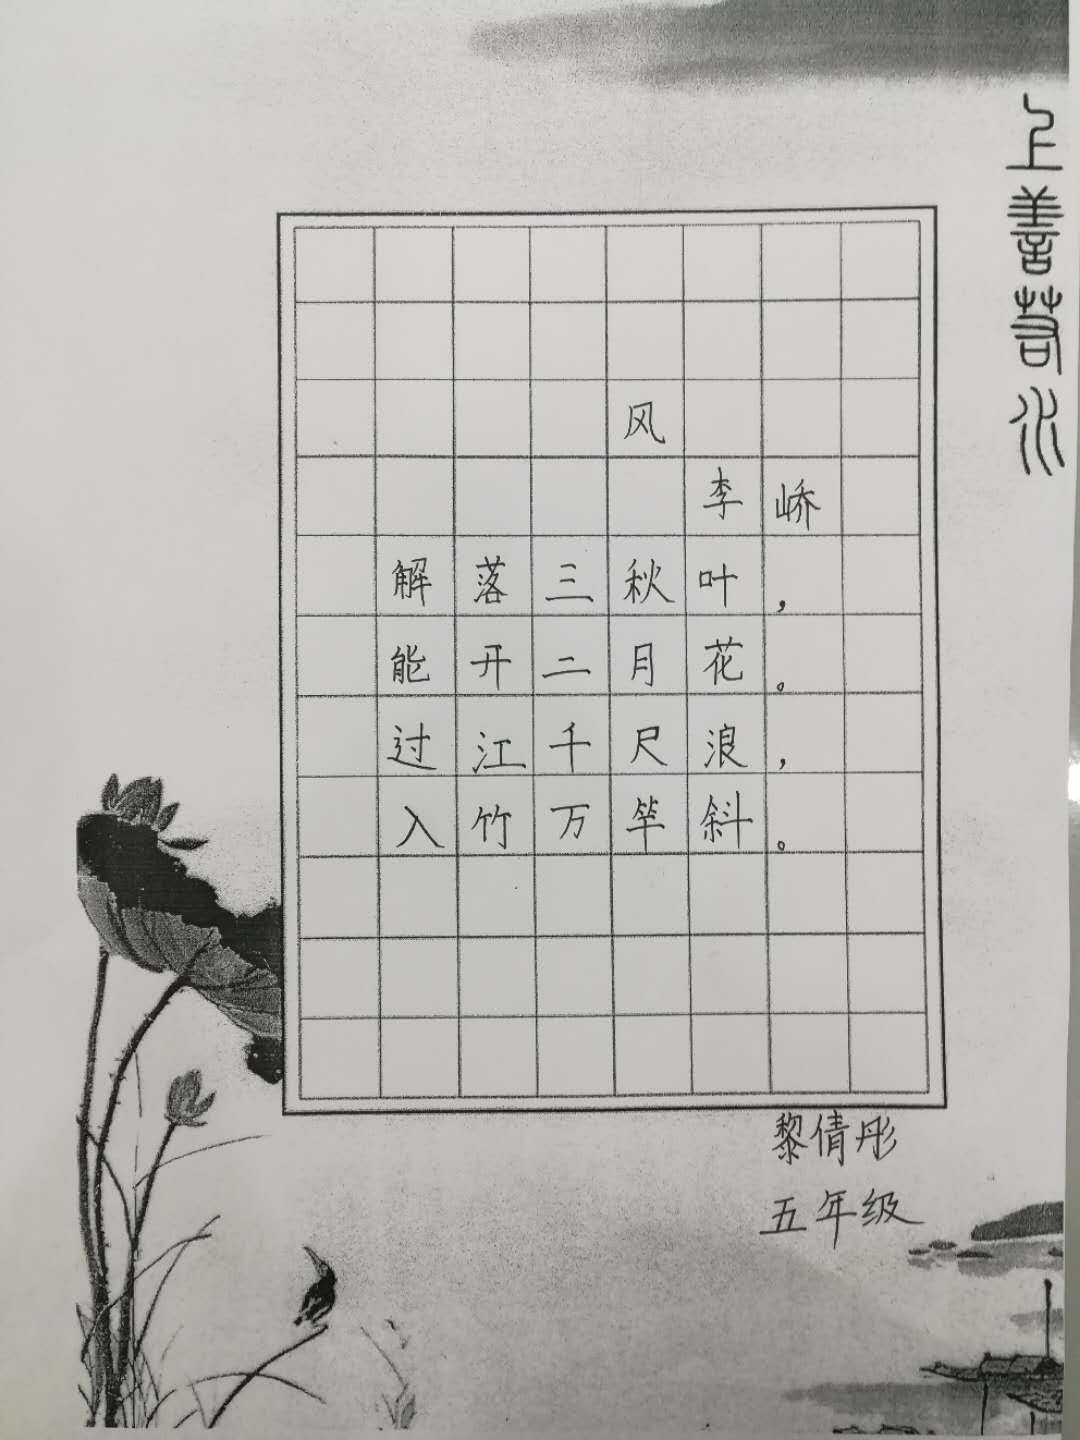 上善若水
风
李峤
解落三秋叶，
能开二月花。
过江千尺浪，
入竹万竿斜。
黎倩彤
五年级